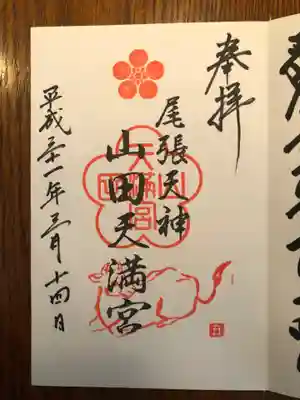 奉拝
尾張天神
山田天満宮
平成三十一年三月十四日